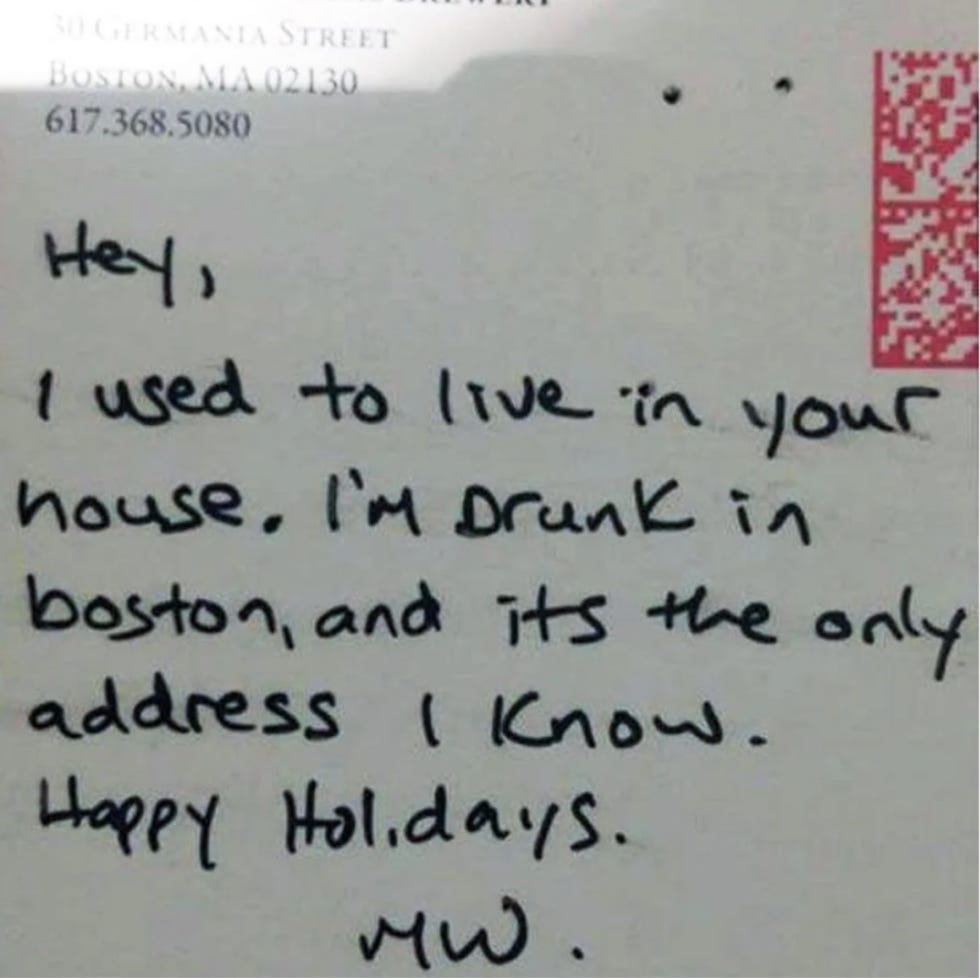 BREWERY
30 GERMANIA STREET
BOSTON, MA 02130
617.368.5080
Hey,
I used to live in your
house. I'm Drunk in
boston, and its the only
address I Know.
Happy Holidays.
MW.